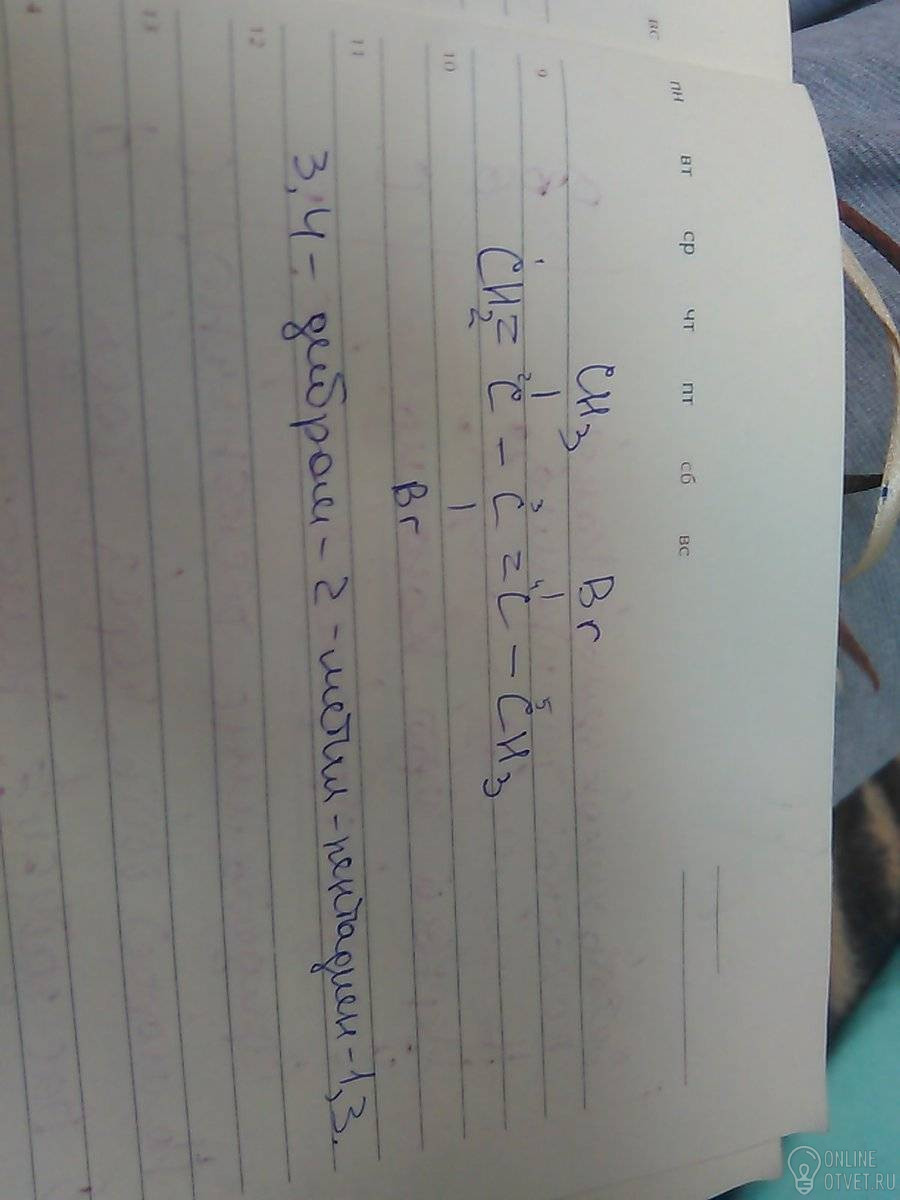 вс
пн вт ср чт пт сб вс
9
10
11
12
13
4
CH3 Br
1 2 3 4 5
CH2= C - C = C - CH3
Br
3,4- дибром - 2 -метил -пентадиен -1,3.
ONLINE
OTVET.RU